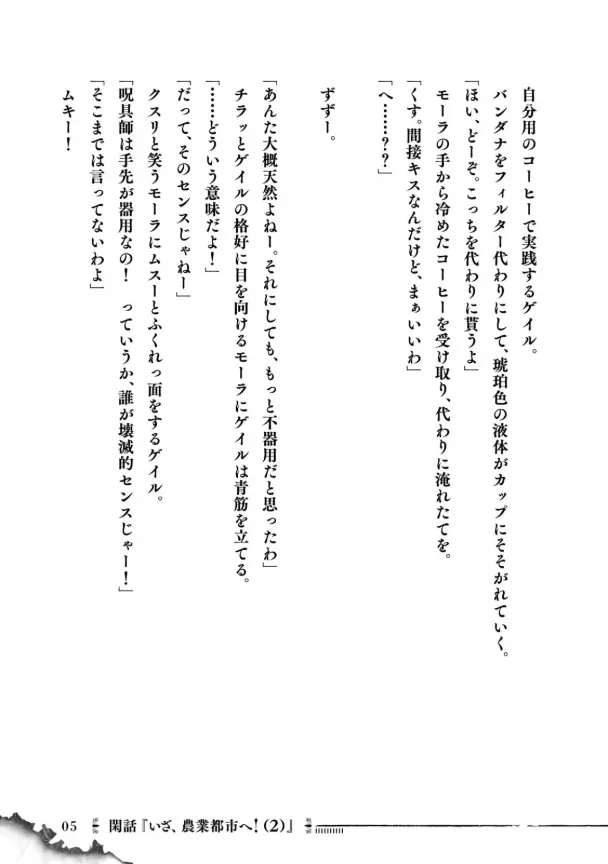 自分用のコーヒーで実践するゲイル。
バンダナをフィルター代わりにして、琥珀色の液体がカップにそそがれていく。
「ほい、どーぞ。こっちを代わりに貰うよ」
モーラの手から冷めたコーヒーを受け取り、代わりに淹れたてを。
「くす。間接キスなんだけど、まぁいいわ」
「へ……？？」
ずずー。
「あんた大概天然よねー。それにしても、もっと不器用だと思ったわ」
チラッとゲイルの格好に目を向けるモーラにゲイルは青筋を立てる。
「……どういう意味だよ！」
「だって、そのセンスじゃねー」
クスリと笑うモーラにムスーとふくれっ面をするゲイル。
「呪具師は手先が器用なの！　っていうか、誰が壊滅的センスじゃー！」
「そこまでは言ってないわよ」
ムキー！
05 閑話『いざ、農業都市へ！（２）』